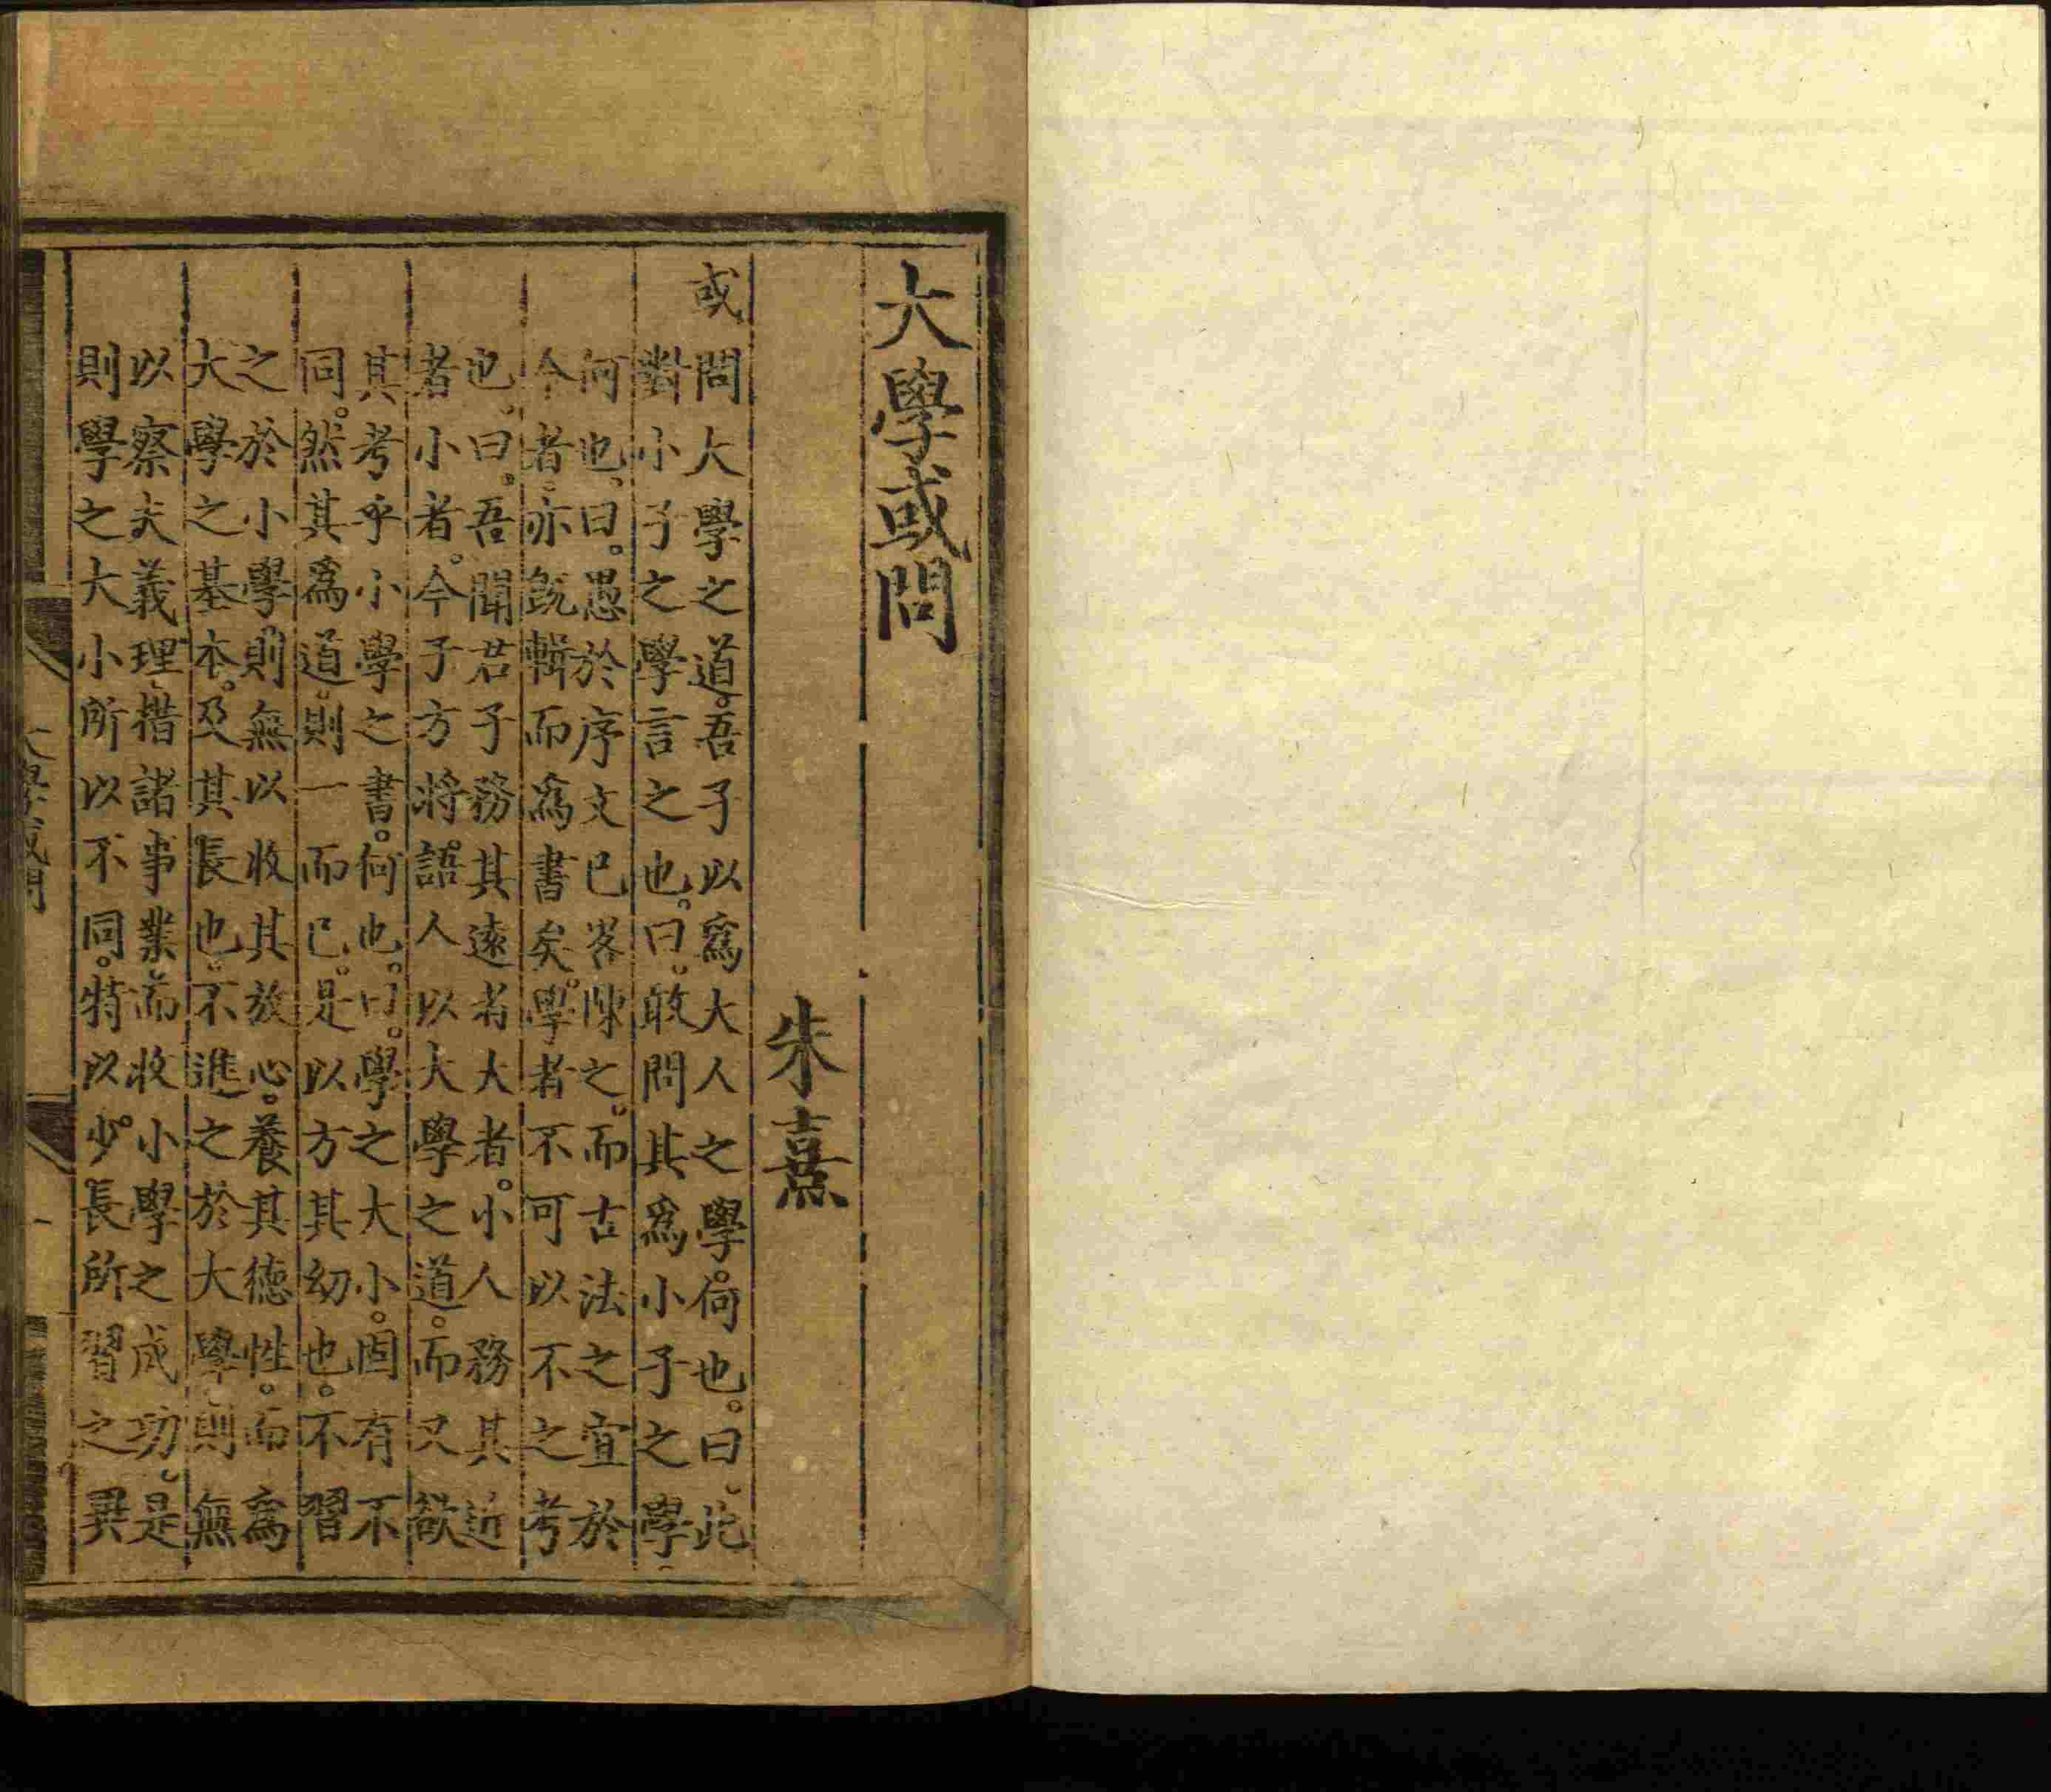 大學或問
朱熹
或問大學之道。吾子以爲大人之學。何也。曰。此
對小子之學言之也。曰。敢問其爲小子之學。
何也。曰。愚於序文已畧陳之。而古法之宜於
今者。亦旣輯而爲書矣。學者不可以不之考
也。曰。吾聞君子務其遠者大者。小人務其近
者小者。今子方將語人以大學之道。而又欲
其考乎小學之書。何也。曰。學之大小。固有不
同。然其爲道。則一而已。是以方其幼也。不習
之於小學。則無以收其放心。養其德性。而爲
大學之基本。及其長也。不進之於大學。則無
以察夫義理。措諸事業。而收小學之成功。是
則學之大小所以不同。特以少長所習之異
大學或問
一